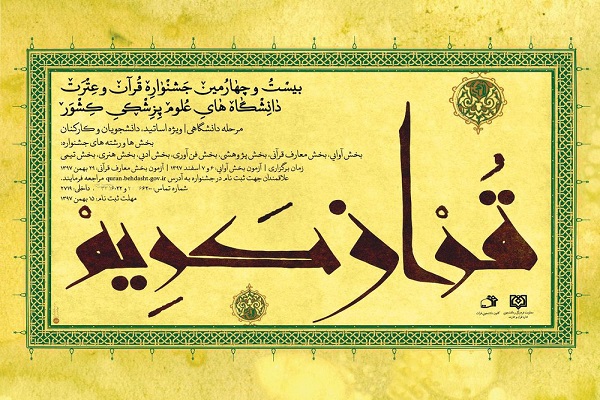 بیست و چهارمین جشنواره قرآن و عترت
دانشگاه های علوم پزشکی کشور
مرحله دانشگاهی | ویژه اساتید، دانشجویان و کارکنان
بخش ها و رشته های جشنواره:
بخش آوایی، بخش معارف قرآنی، بخش پژوهشی، بخش فن آوری، بخش ادبی، بخش هنری، بخش تیمی
زمان برگزاری | آزمون بخش آوایی: ۶ و ۷ اسفند ۱۳۹۷ | آزمون بخش معارف قرآنی: ۲۹ بهمن ۱۳۹۷
علاقمندان جهت ثبت نام در جشنواره به آدرس quran.behdasht.gov.ir مراجعه فرمایند.
شماره تماس: داخلی: ۲۷۱۹
مهلت ثبت نام: ۱۵ بهمن ۱۳۹۷
قرآن کریم